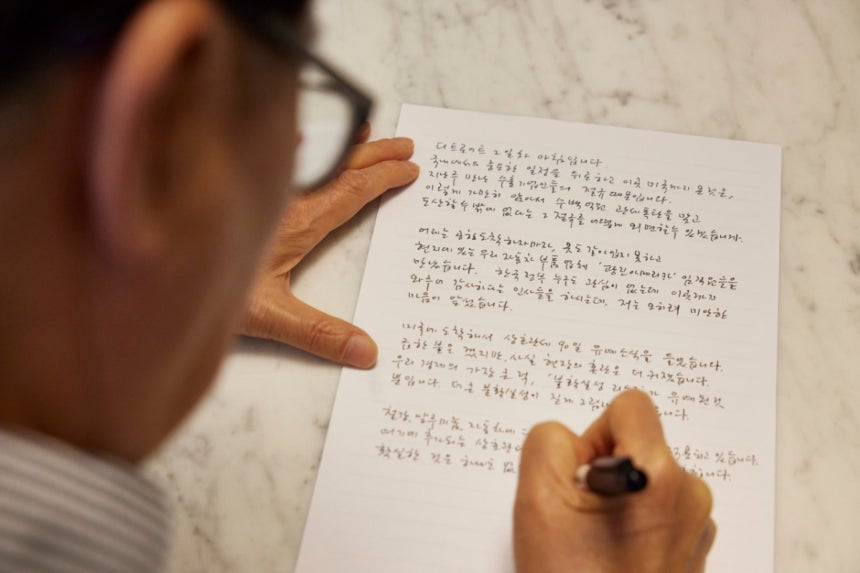 디트로이트 2일차 아침입니다.
국내에서의 중요한 일정을 뒤로하고 이곳 미국까지 온 것은,
지난주 만난 수출기업인들의 절규 때문입니다.
이렇게 가만히 앉아서 수백억원 관세폭탄을 맞고
도산할 수 밖에 없다는 그 절규를 어떻게 외면할 수 있겠습니까.
어제는 공항 도착하자마자, 옷도 갈아입지 못하고
현지에 있는 우리 자동차 부품 업체 '광진아메리카' 임직원들을
만났습니다. 한국 정부 누구도 관심이 없는데 이곳까지
와주어 감사하다는 인사들을 하시는데, 저는 오히려 미안한
마음이 앞섰습니다.
미국에 도착해서 상호관세 90일 유예 소식을 들었습니다.
급한 불은 껐지만, 사실 현장의 혼란은 더 커졌습니다.
우리 경제의 가장 큰 적, '불확실성 유예된 것
뿐입니다. 더 큰 불확실성이 짙게
철강, 알루미늄, 자동차에 적용하고 있습니다.
여기에 추가되는 상호관
확실한 것은 하나도